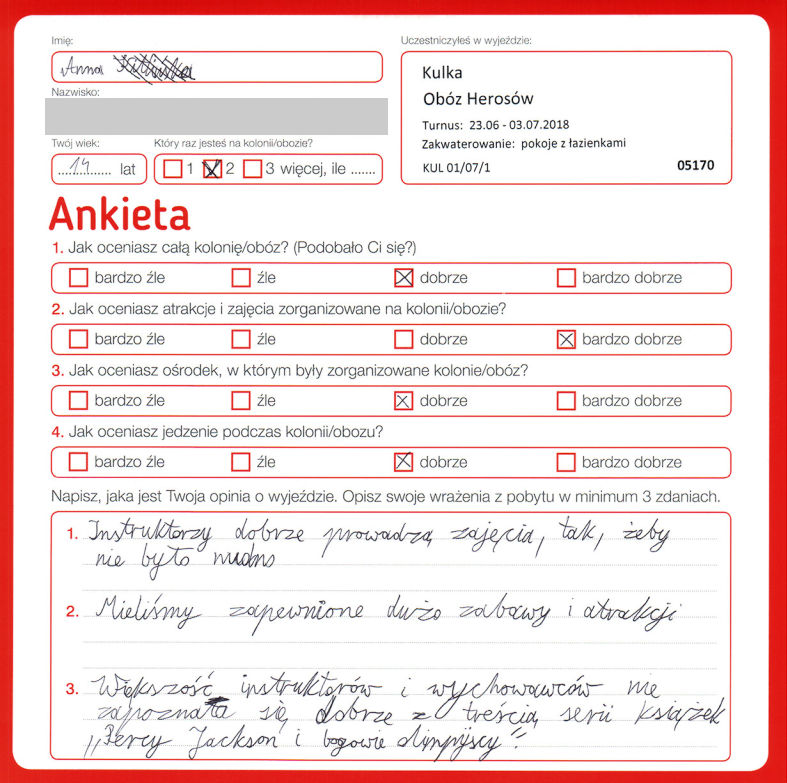 Imię:
Uczestniczyłeś w wyjeździe:
Anna
Kulka
Obóz Herosów
Nazwisko:
Turnus: 23.06 - 03.07.2018
Zakwaterowanie: pokoje z łazienkami
KUL 01/07/1 05170
Twój wiek:
Który raz jesteś na kolonii/obozie?
14 lat
1 2 3 więcej, ile .......
Ankieta
1. Jak oceniasz całą kolonię/obóz? (Podobało Ci się?)
bardzo źle źle dobrze bardzo dobrze
2. Jak oceniasz atrakcje i zajęcia zorganizowane na kolonii/obozie?
bardzo źle źle dobrze bardzo dobrze
3. Jak oceniasz ośrodek, w którym były zorganizowane kolonie/obóz?
bardzo źle źle dobrze bardzo dobrze
4. Jak oceniasz jedzenie podczas kolonii/obozu?
bardzo źle źle dobrze bardzo dobrze
Napisz, jaka jest Twoja opinia o wyjeździe. Opisz swoje wrażenia z pobytu w minimum 3 zdaniach.
1. Instruktorzy dobrze prowadzą zajęcia, tak, żeby
nie było nudno
2. Mieliśmy zapewnione dużo zabawy i atrakcji
3. Większość instruktorów i wychowawców nie
zapoznała się dobrze z treścią serii książek
„Percy Jackson i bogowie olimpijscy"